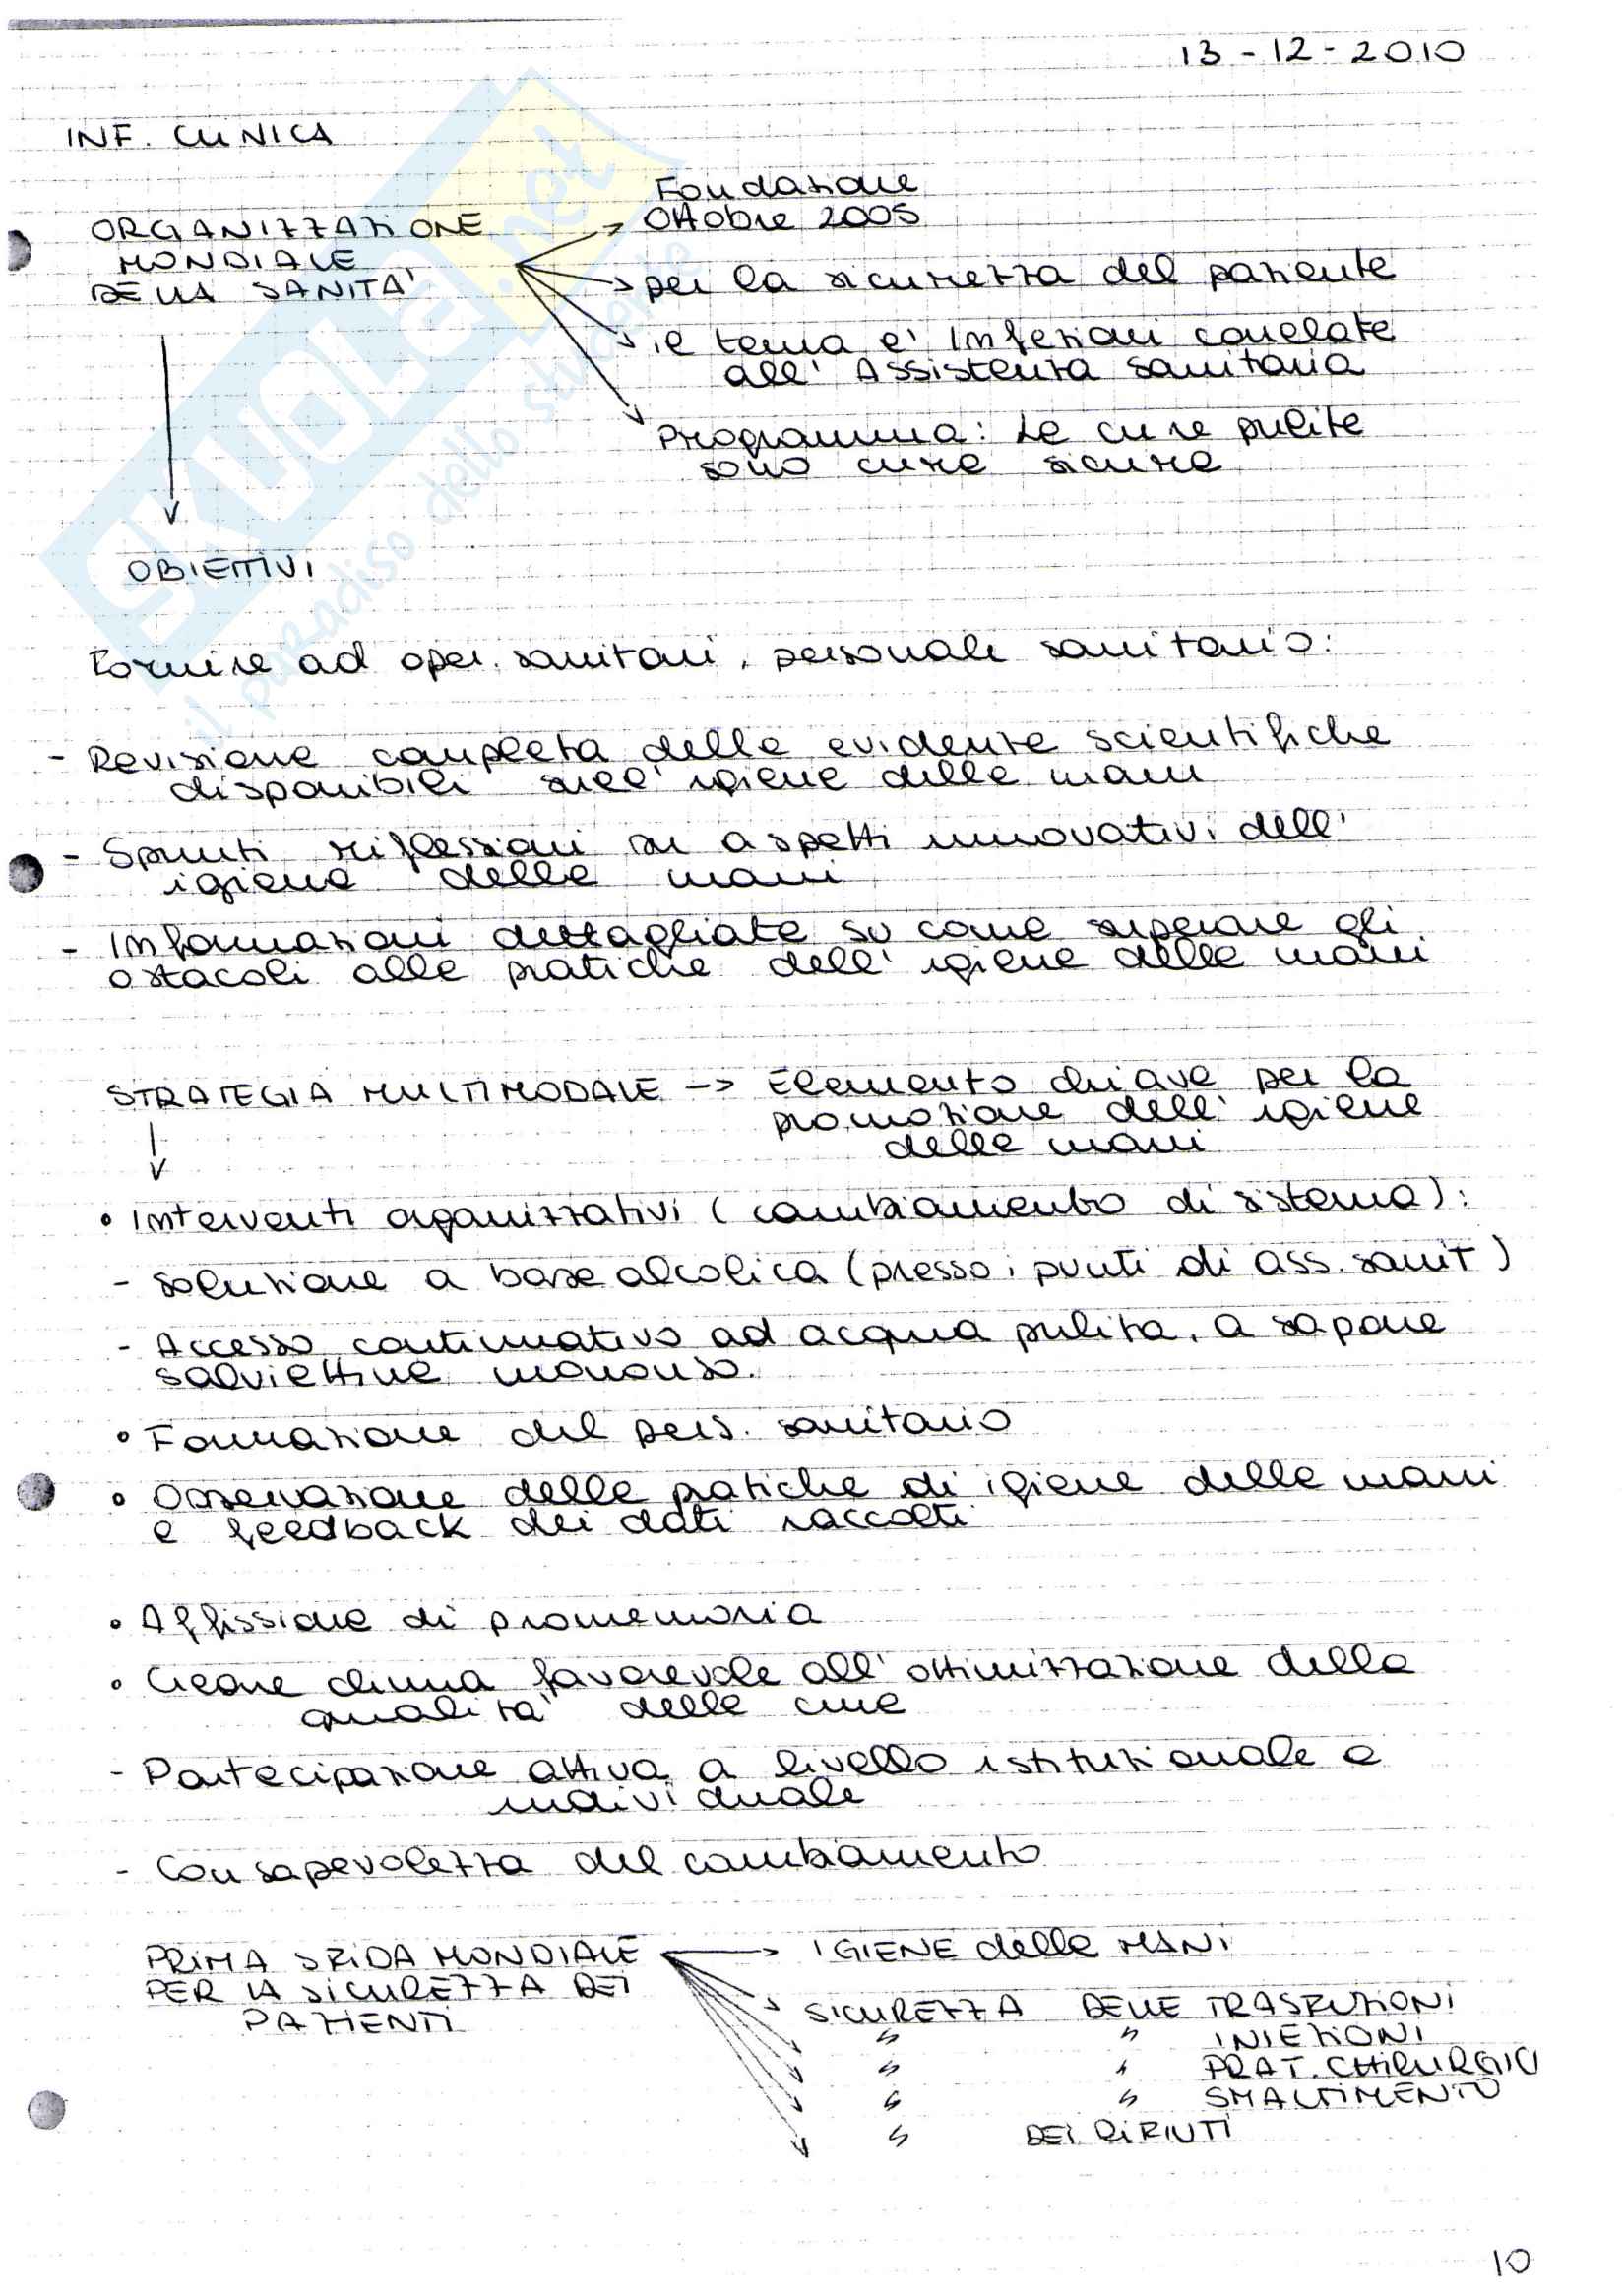 13-12-2010
INF. CLINICA
Fondazione
ORGANIZZAZIONE → Ottobre 2005
MONDIALE
DELLA SANITA'
→ per la sicurezza del paziente
→ il tema e' Infezioni correlate
all' Assistenza sanitaria
→ Programma: Le cure pulite
sono cure sicure
↓
OBIETTIVI
Fornire ad oper. sanitari, personale sanitario:
- Revisione completa delle evidenze scientifiche
disponibili sull' igiene delle mani
- Spunti riflessioni su aspetti innovativi dell'
igiene delle mani
- Informazioni dettagliate su come superare gli
ostacoli alle pratiche dell' igiene delle mani
STRATEGIA MULTIMODALE -> Elemento chiave per la
promozione dell' igiene
delle mani
↓
• Interventi organizzativi (cambiamento di sistema):
- soluzione a base alcolica (presso i punti di ass. sanit)
- Accesso continuativo ad acqua pulita, a sapone
salviettine monouso.
• Formazione del pers. sanitario
• Osservazione delle pratiche di igiene delle mani
e feedback dei dati raccolti
• Affissione di promemoria
• Creare clima favorevole all' ottimizzazione della
qualita' delle cure
- Partecipazione attiva a livello istituzionale e
individuale
- Consapevolezza del cambiamento
PRIMA SFIDA MONDIALE → IGIENE delle MANI
PER LA SICUREZZA DEI
PAZIENTI
→ SICUREZZA DELLE TRASFUZIONI
" " INIEZIONI
" " PRAT. CHIRURGICI
" " SMALTIMENTO
" DEI RIFIUTI
10
SKUOLA.net
il paradiso dello studente